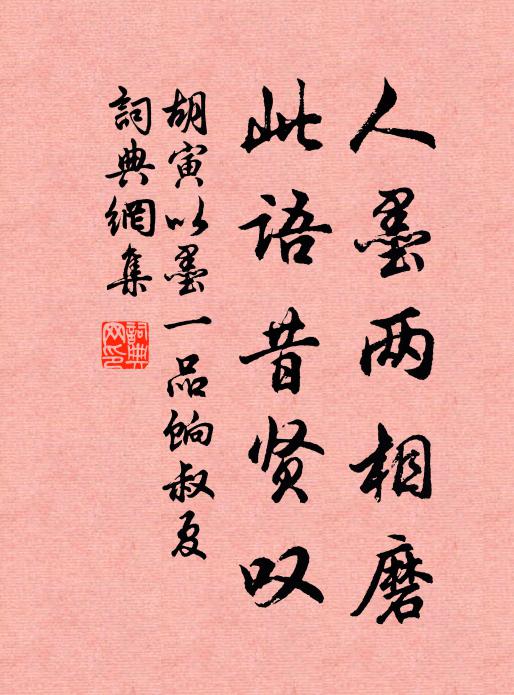 人墨两相磨
此语昔贤叹
胡寅以墨一品饷叔夏
詞典網集
詞典网印